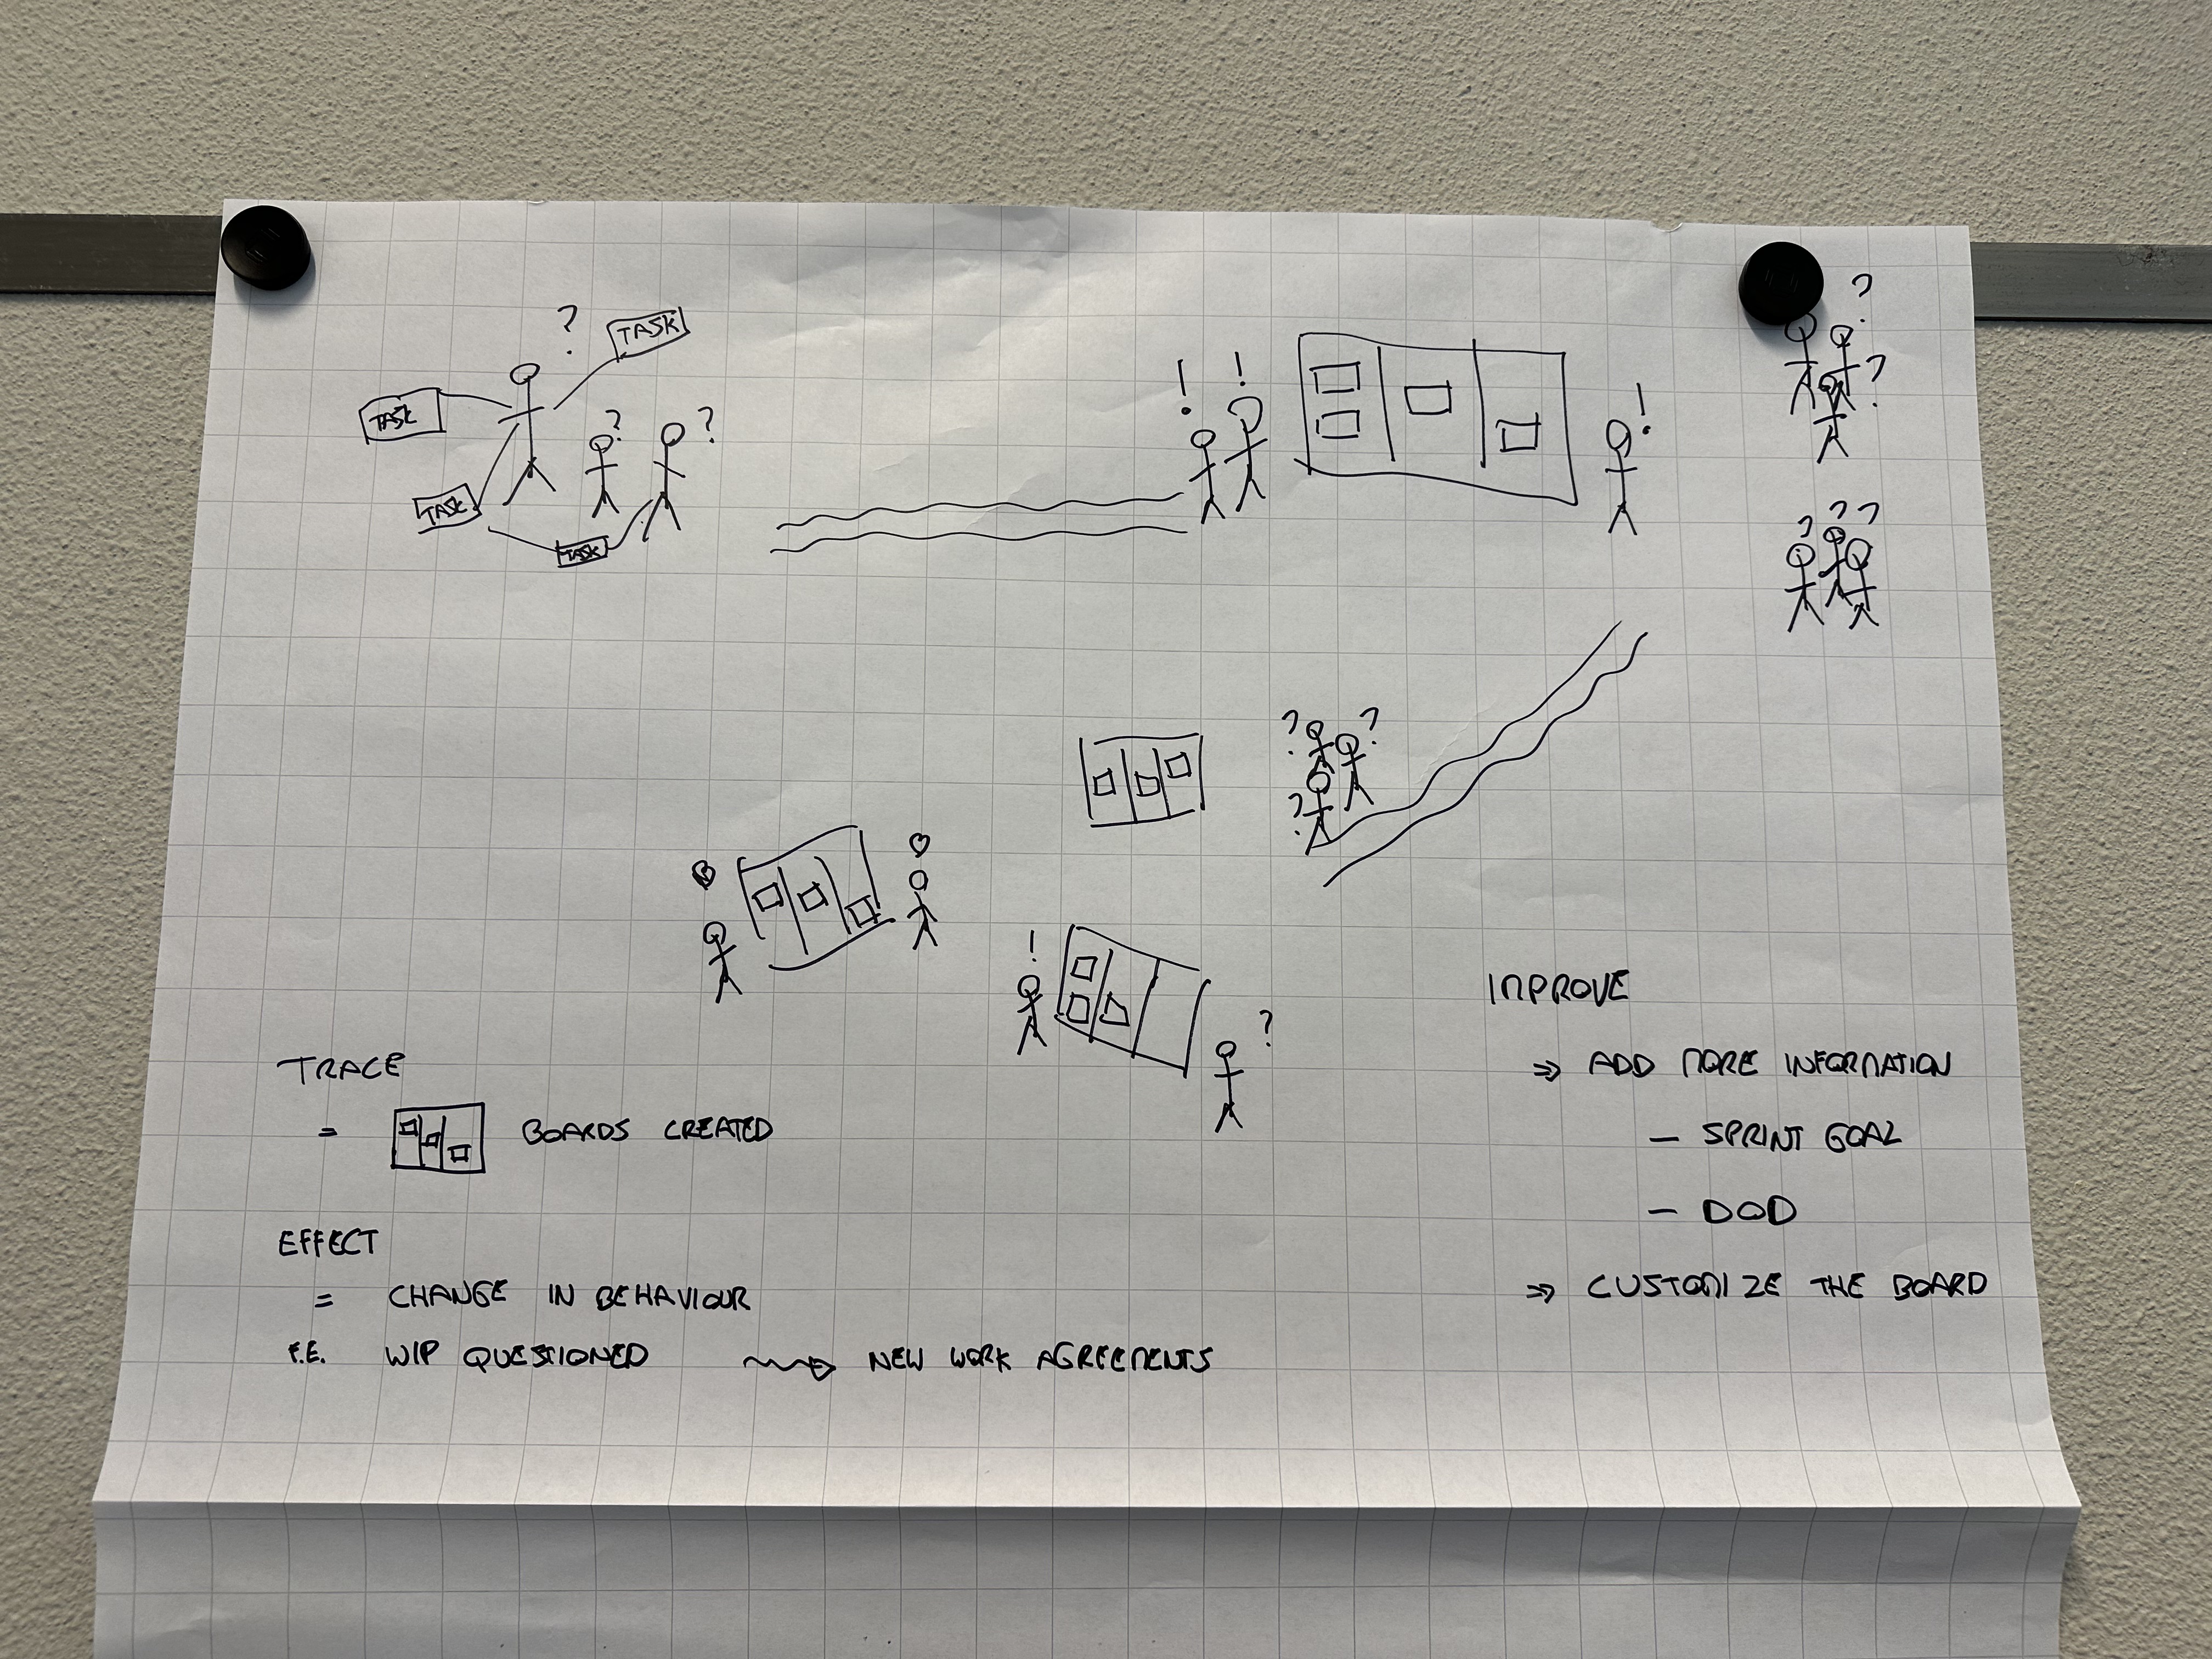 ?
TASK
TASK
? ?
TASK
TASK
! !
!
?
?
? ? ?
? ?
?
!
?
TRACE
= BOARDS CREATED
EFFECT
= CHANGE IN BEHAVIOUR
F.E. WIP QUESTIONED NEW WORK AGREEMENTS
IMPROVE
⇒ ADD MORE INFORMATION
— SPRINT GOAL
— DOD
⇒ CUSTOMIZE THE BOARD